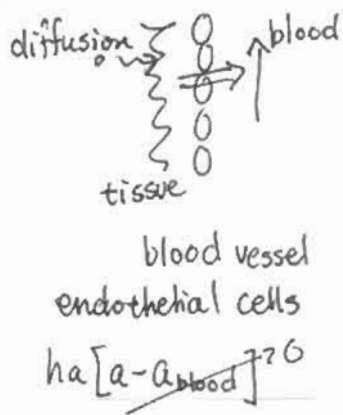 diffusion
blood
tissue
blood vessel
endothelial cells
ha[a-a_blood]→0